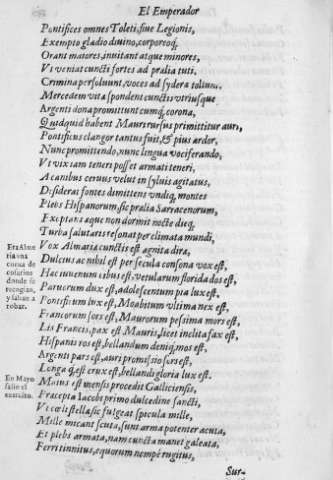 El Emperador
Pontifices omnes Toleti, siue Legionis,
Exempto gladio diuino, corporeoq;
Orant maiores, inuitant atque minores,
Vt veniat cuncti fortes ad prælia tuti.
Crimina persoluunt, voces ad sydera tollunt.
Mercedem vitæ spondent cunctis vtriusque
Argenti dona promittunt cumq; corona,
Quidquid habent Mauri rursus primittitur auri,
Pontificus clangor tantus fuit, & pius ardor,
Nunc promittendo, nunc lingua vociferando,
Vt vix iam teneri posset armati teneri,
A canibus ceruus velut in syluis agitatus,
Desiderat fontes dimittens vndiq; montes
Plebs Hispanorum, sic prælia Sarracenorum,
Exoptans æque non dormit nocte dieq;
Turba salutaris resonat per climata mundi,
Vox Almaria cunctis est agnita dira,
Dulcius ac nihil est per secula consona vox est,
Hæc iuuenum cibus est, vetularum florida dos est,
Paruorum dux est, adolescentum pia lux est,
Pontificum lux est, Moabitum vltima nex est,
Francorum sors est, Maurorum pessima mors est,
Lis Francis, pax est Mauris, licet inclita fax est,
Hispanis ros est, bellandum deniq; mos est,
Argenti pars est, auri promissio sors est,
Longa q; est crux est, bellandi gloria lux est.
Maius est mensis procedit Galliciensis,
Præcepta Iacobi primo dulcedine sancti,
Vt cœli stellæ, sic fulgeat specula mille,
Mille micant scuta, sunt arma potenter acuta,
Et plebs armata, nam cuncta manet galeata,
Ferri tinnitus, equorum nempè rugitus,
Sur-
Era Alme
ria vna
cueua de
cosarios
donde se
recogian,
y salian a
robar.
En Mayo
salio el
exercito.